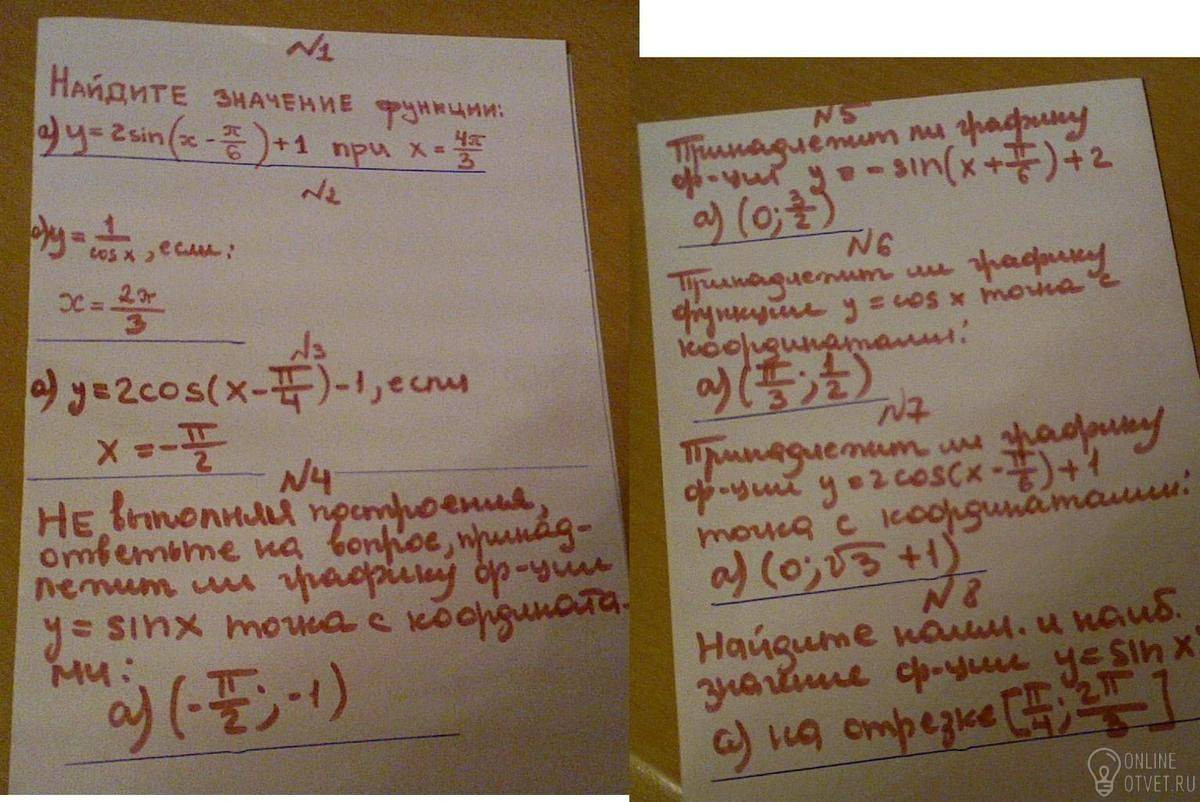 №1
НАЙДИТЕ ЗНАЧЕНИЕ функции:
а) y = 2sin(x - π/6) + 1 при x = 4π/3
№2
а) y = 1/cos x, если:
x = 2π/3
№3
а) y = 2cos(x - π/4) - 1, если
x = -π/2
№4
НЕ выполняя построения,
ответьте на вопрос, принад-
лежит ли графику ф-ции
y = sinx точка с координата-
ми:
а) (-π/2; -1)
№5
Принадлежит ли графику
ф-ции y = - sin(x + π/6) + 2
а) (0; 3/2)
№6
Принадлежит ли графику
функции y = cos x точка с
координатами:
а) (π/3; 1/2)
№7
Принадлежит ли графику
ф-ции y = 2cos(x - π/6) + 1
точка с координатами:
а) (0; √3 + 1)
№8
Найдите наим. и наиб.
значение ф-ции y = sin x
а) на отрезке [π/4; 2π/3]
ONLINE
OTVET.RU